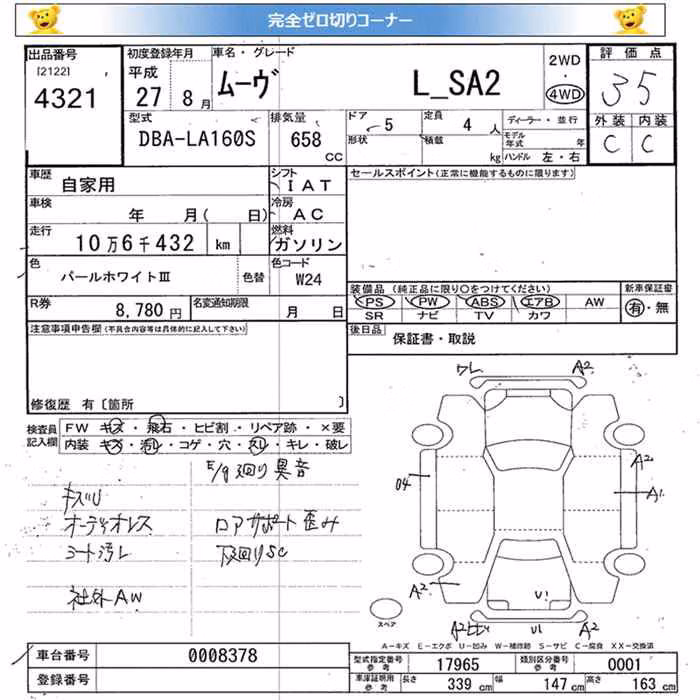 完全ゼロ切りコーナー
出品番号
[2122]
4321
初度登録年月
平成
27 8月
車名・グレード
ムーヴ L_SA2
2WD
・
4WD
評価点
35
外装 内装
C C
型式
DBA-LA160S
排気量
658
CC
ドア 5
形状
定員 4 人
積載 kg
ディーラー・並行
モデル
年式 年
ハンドル 左・右
車歴
自家用
シフト
IAT
車検
年 月( 日)
冷房
AC
走行
10万6千432 km
燃料
ガソリン
色
パールホワイトⅢ
色替
色コード
W24
R券
8,780円
名変通知期限
月 日
セールスポイント(正常に機能するものに限ります)
装備品 (純正品に限り○をつけてください)
PS PW ABS エアB AW
SR ナビ TV カワ
新車保証書
有・無
後日品
保証書・取説
注意事項申告欄(不具合内容等は具体的に記入して下さい)
修復歴 有〔箇所 〕
検査員
記入欄
FW キズ・飛石・ヒビ割・リペア跡・×要
内装 キズ・汚れ・コゲ・穴・スレ・キレ・破レ
E/g廻り異音
キズU
オーディオレス
シート汚レ
社外AW
ロアサポート歪み
下廻りSC
ワレ
A2
04
A2
A1
A2
U1
A2
U1
A2
スペア
A-キズ E-エクボ U-凹み W-補修跡 S-サビ C-腐食 XX-交換済
車台番号
0008378
登録番号
型式指定番号
参考
17965
類別区分番号
参考
0001
車庫証明用
参考
長さ 339 cm
幅 147 cm
高さ 163 cm